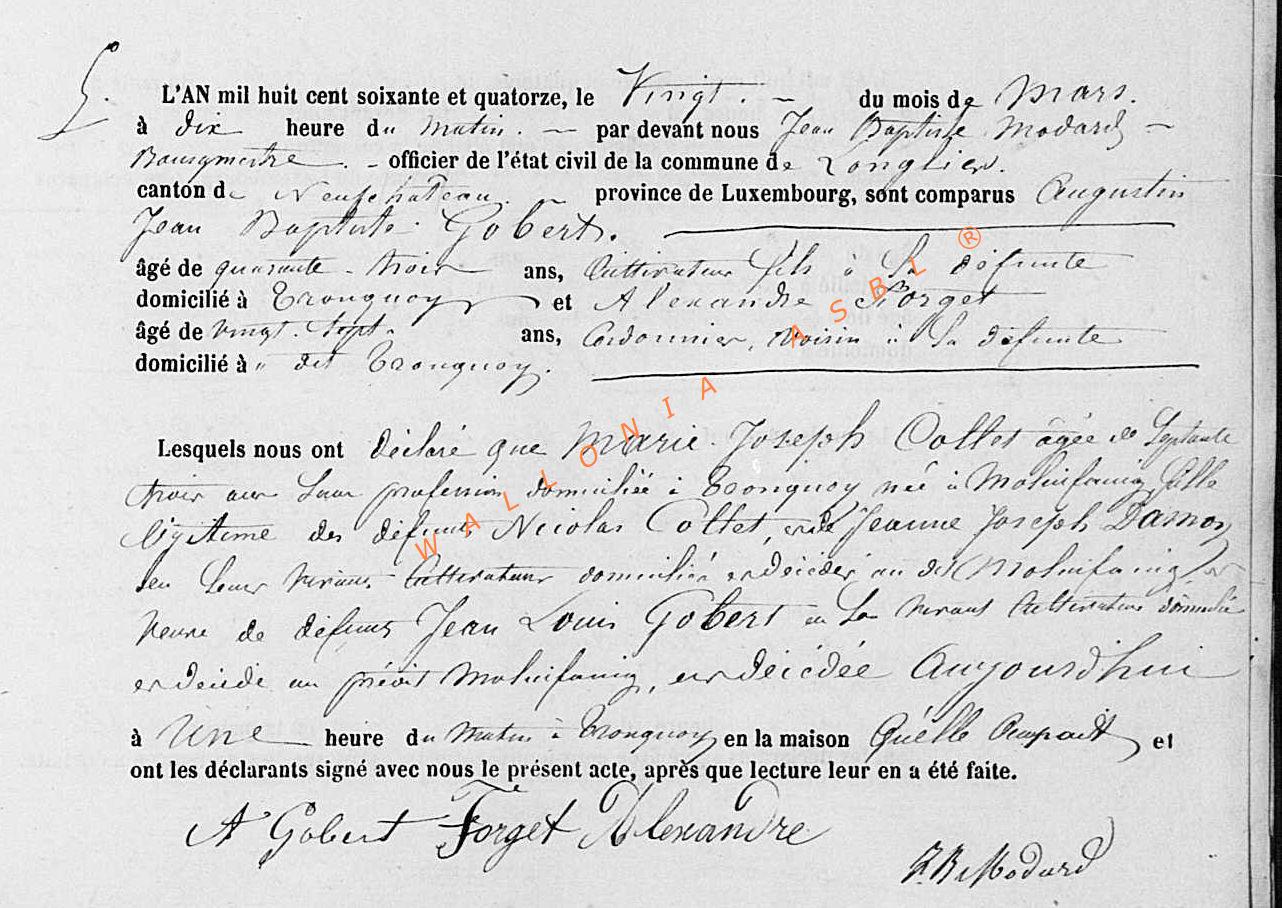 5.
L'AN mil huit cent soixante et quatorze, le Vingt. du mois de Mars.
à dix heure du Matin. — par devant nous Jean Baptiste Modard —
Bourgmestre. - officier de l'état civil de la commune de Longlier.
canton de Neufchateau. — province de Luxembourg, sont comparus Augustin
Jean Baptiste Gobert.
âgé de quarante-trois ans, Cultivateur fils à la défunte
domicilié à Tronquoy et Alexandre Forget
âgé de vingt-sept- ans, Cordonnier, voisin à la défunte
domicilié à " dit Tronquoy.
Lesquels nous ont déclaré que Marie Joseph Collet âgée de Septante
trois ans Sans profession domiciliée à Tronquoy née à Molinfaing fille
légitime des défunts Nicolas Collet, et de Jeanne Joseph
en leur vivant Cultivateurs domiciliés et décédés au dit Molinfaing, et
veuve de défunt Jean Louis Gobert en Son vivant Cultivateur domicilié
et décédé au prédit Molinfaing, est décédée Aujourd'hui
à Une heure du Matin à Tronquoy en la maison Qu'elle Occupait et
ont les déclarants signé avec nous le présent acte, après que lecture leur en a été faite.
A Gobert Forget Alexandre
J. B. Modard
WALLONIA ASBL ®